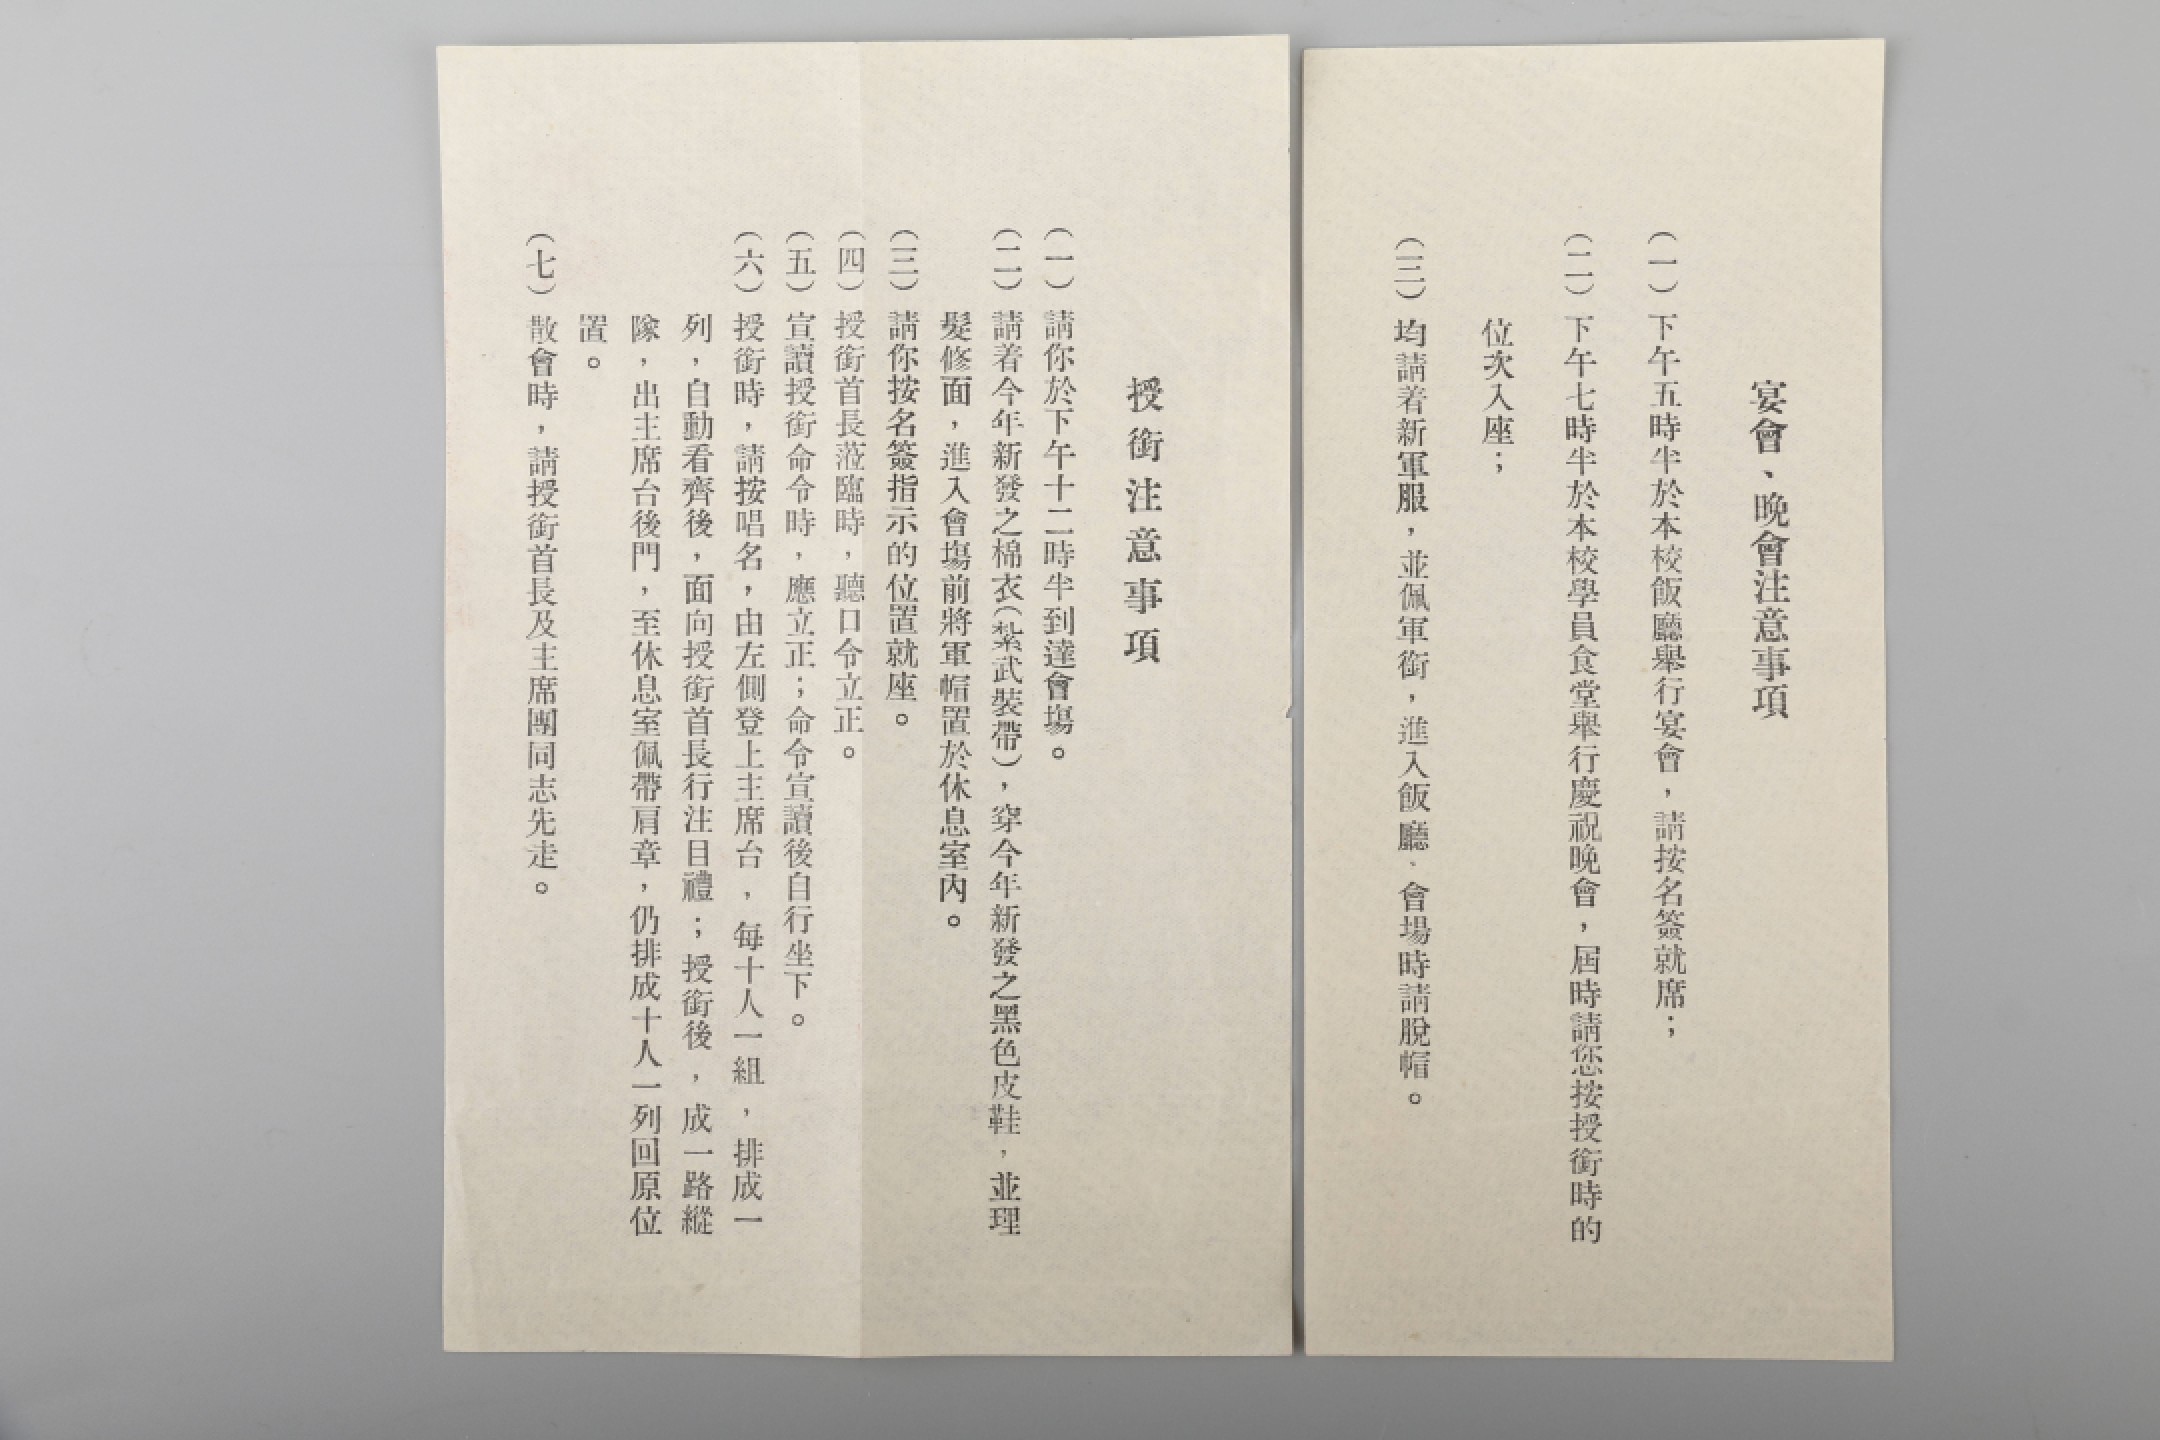 宴會、晚會注意事項
（一）下午五時半於本校飯廳舉行宴會，請按名簽就席；
（二）下午七時半於本校學員食堂舉行慶祝晚會，屆時請您按授銜時的
位次入座；
（三）均請着新軍服，並佩軍銜，進入飯廳、會場時請脫帽。
授銜注意事項
（一）請你於下午十二時半到達會塲。
（二）請着今年新發之棉衣（紮武裝帶），穿今年新發之黑色皮鞋，並理
髮修面，進入會塲前將軍帽置於休息室內。
（三）請你按名簽指示的位置就座。
（四）授銜首長蒞臨時，聽口令立正。
（五）宣讀授銜命令時，應立正；命令宣讀後自行坐下。
（六）授銜時，請按唱名，由左側登上主席台，每十人一組，排成一
列，自動看齊後，面向授銜首長行注目禮；授銜後，成一路縱
隊，出主席台後門，至休息室佩帶肩章，仍排成十人一列回原位
置。
（七）散會時，請授銜首長及主席團同志先走。